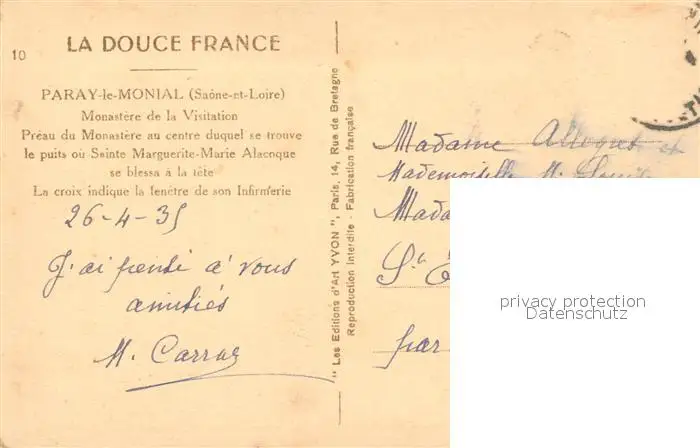 10
LA DOUCE FRANCE
PARAY-le-MONIAL (Saône-et-Loire)
Monastère de la Visitation
Préau du Monastère au centre duquel se trouve
le puits où Sainte Marguerite-Marie Alacoque
se blessa à la tête
La croix indique la fenêtre de son Infirmerie
26-4-35
J'ai pensé à vous
amitiés
M. Carrue
"Les Editions d'Art YVON", Paris, 14, Rue de Bretagne
Reproduction Interdite - Fabrication française
Madame et
Mademoiselle M.
Mada
St E
par
privacy protection
Datenschutz